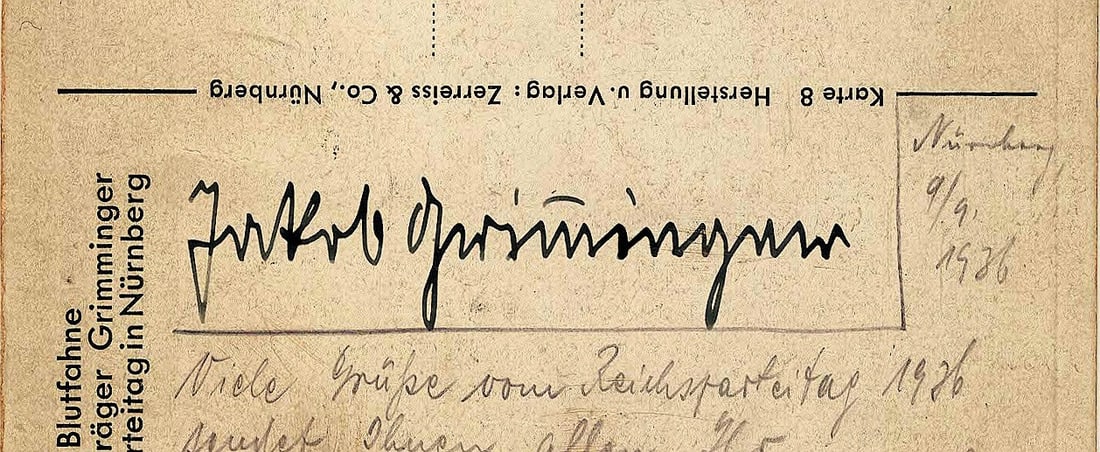 Karte 8 Herstellung u. Verlag: Zerreiss & Co., Nürnberg
Blutfahne
räger Grimminger
rteitag in Nürnberg
Jakob Grimminger
Nürnberg
9/9.
1936
Viele Grüße vom Reichsparteitag 1936
sendet Ihnen allen